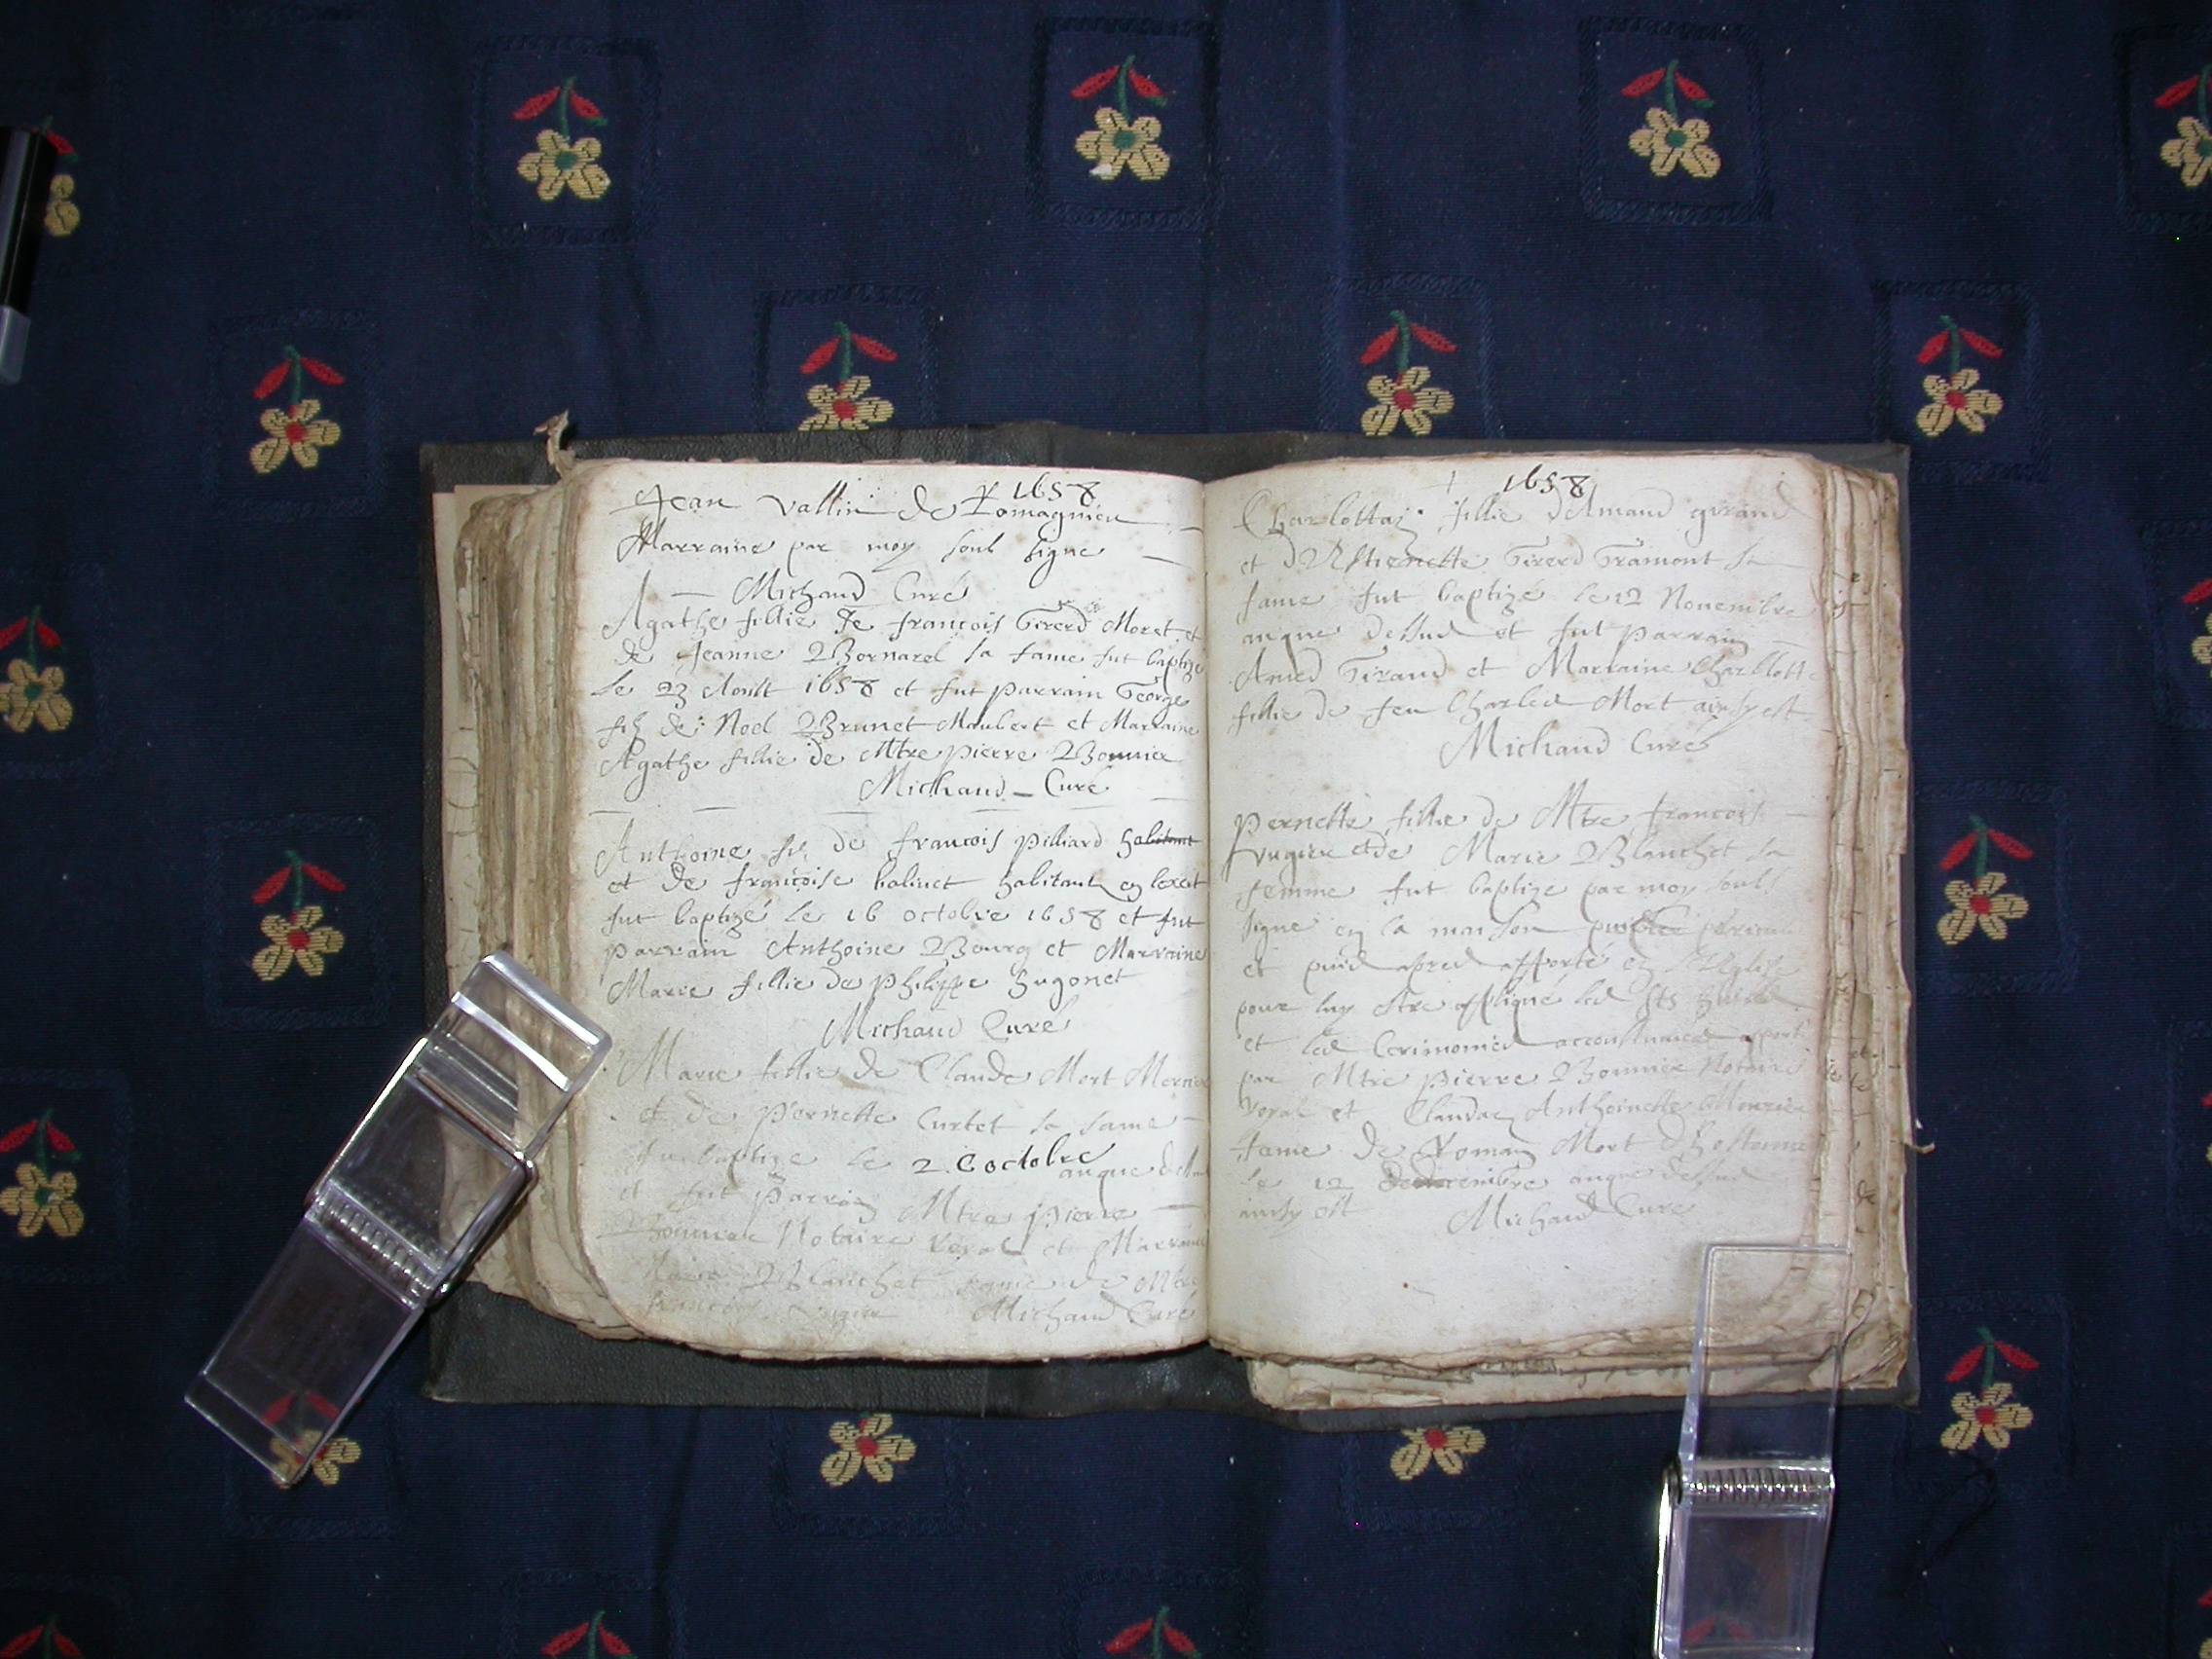 1658
Jean Vallin de Romagnieu
Marraine par moy soub signe
Michaud Curé
Agathe fillie de francois Girerd Moret et
de Jeanne Bornarel sa fame fut baptize
le 23 Aoust 1658 et fut parrain George
filz de Noel Brunet Maubert et Marraine
Agathe fillie de Mtre pierre Bonnier
Michaud Curé
Anthoine fil de francois pilliard habitant
et de francoise balinet habitant en
fut baptizé le 16 octobre 1658 et fut
parrain Anthoine Bourg et Marraine
Marie fillie de philippe hugonet
Michaud Curé
Marie fillie de Claude Mort Mernier
et de Pernette Curtet sa fame
fut baptize le 26 octobre
anque dessus
et fut parrain Mtre pierre
Bonnier Notaire Royal et Marraine
Marie Blanchet fame de Mtre
francois Michaud Curé
1658
Charlottaz fillie dAmaud giraud
et dEstienette Girerd Gramont sa
fame fut baptizé le 12 Nouembre
anque dessus et fut parrain
Amed Giraud et Marraine Charlotte
fillie de feu Charles Mort ainsy est
Michaud Curé
Pernette fillie de Mtre francois
et de Marie Blanchet sa
femme fut baptize par moy soubs
signe en la maison
et puis apres apporté en l'Eglise
pour luy estre appliqué les Sts huiles
et les Cerimonies accoustumees apporté
par Mtre pierre Bonnier Notaire
Royal et Claudaz Anthoinette
fame de Roman Mort
le 12 decembre anque dessus
ainsy est Michaud Curé